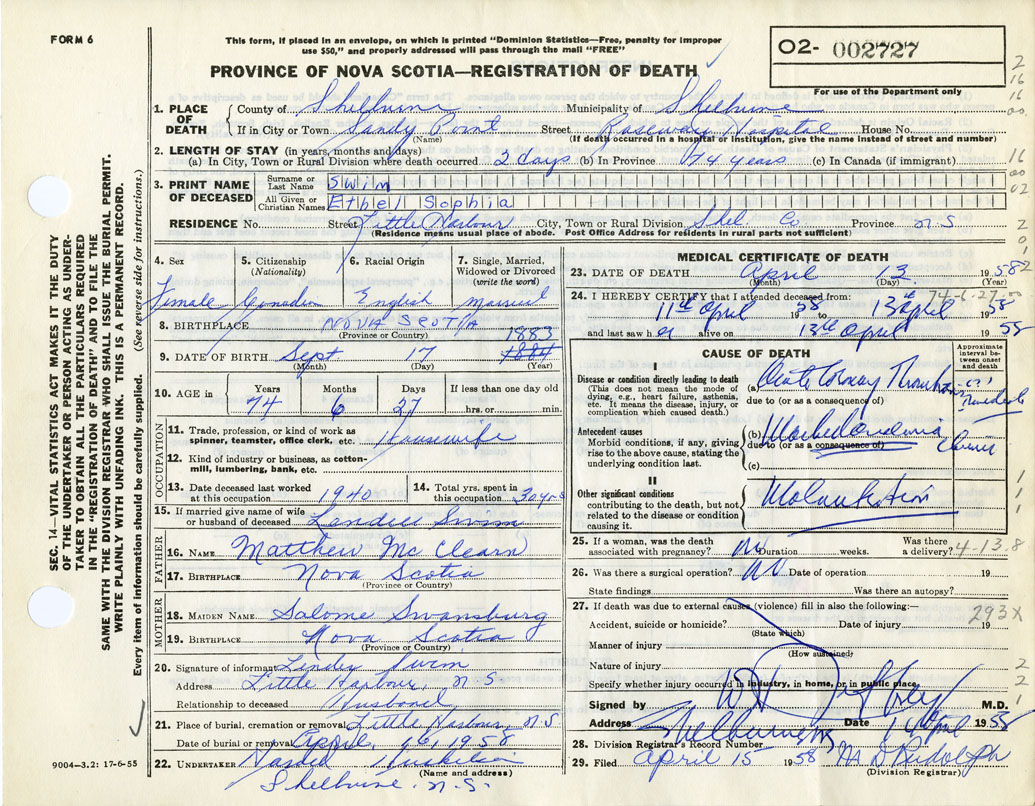 FORM 6
This form, if placed in an envelope, on which is printed "Dominion Statistics—Free, penalty for improper
use $50," and properly addressed will pass through the mail "FREE"
PROVINCE OF NOVA SCOTIA—REGISTRATION OF DEATH
O2- 002727
For use of the Department only
1. PLACE OF DEATH
County of Shelburne Municipality of Shelburne
If in City or Town Sandy Point Street Roseway Hospital House No.
(Name) (If death occurred in a hospital or institution, give the name instead of street and number)
2. LENGTH OF STAY (in years, months and days)
(a) In City, Town or Rural Division where death occurred 2 days (b) In Province 74 years (c) In Canada (if immigrant)
3. PRINT NAME OF DECEASED
Surname or Last Name Swim
All Given or Christian Names Ethel Sophia
RESIDENCE No. Street Little Harbour City, Town or Rural Division Shel. Co Province N.S
(Residence means usual place of abode. Post Office Address for residents in rural parts not sufficient)
4. Sex 5. Citizenship (Nationality) 6. Racial Origin 7. Single, Married, Widowed or Divorced (write the word)
Female Canadian English married
8. BIRTHPLACE NOVIA SCOTIA
(Province or Country)
1883
9. DATE OF BIRTH Sept 17 1884
(Month) (Day) (Year)
10. AGE in Years Months Days If less than one day old
74 6 27 hrs. or min.
OCCUPATION
11. Trade, profession or kind of work as
spinner, teamster, office clerk, etc. Housewife
12. Kind of industry or business, as cotton-
mill, lumbering, bank, etc.
13. Date deceased last worked at this occupation 1940 14. Total yrs. spent in this occupation 30 yrs
15. If married give name of wife
or husband of deceased Lendell Swim
FATHER
16. NAME Matthew Mc Clearn
17. BIRTHPLACE Nova Scotia
(Province or Country)
MOTHER
18. MAIDEN NAME Salome Swansburg
19. BIRTHPLACE Nova Scotia
(Province or Country)
20. Signature of informant Swim
Address Little Harbour, N.S
Relationship to deceased Husband
21. Place of burial, cremation or removal Little Harbour, N.S
Date of burial or removal April, 1958
22. UNDERTAKER
(Name and address)
Shelburne. N.S.
9004—3.2: 17-6-55
SEC. 14—VITAL STATISTICS ACT MAKES IT THE DUTY
OF THE UNDERTAKER OR PERSON ACTING AS UNDER-
TAKER TO OBTAIN ALL THE PARTICULARS REQUIRED
IN THE "REGISTRATION OF DEATH" AND TO FILE THE
SAME WITH THE DIVISION REGISTRAR WHO SHALL ISSUE THE BURIAL PERMIT.
WRITE PLAINLY WITH UNFADING INK. THIS IS A PERMANENT RECORD.
Every item of information should be carefully supplied. (See reverse side for instructions.)
MEDICAL CERTIFICATE OF DEATH
23. DATE OF DEATH April 13 1958
(Month) (Day)
74-6-27
24. I HEREBY CERTIFY that I attended deceased from:
11th April 1958 13th April 1958
and last saw her alive on 13th April 1958
CAUSE OF DEATH
Approximate interval between onset and death
I
Disease or condition directly leading to death
(This does not mean the mode of
dying, e.g., heart failure, asthenia,
etc. It means the disease, injury, or
complication which caused death.)
(a) Acute Coronary
due to (or as a consequence of)
Antecedent causes
Morbid conditions, if any, giving
rise to the above cause, stating the
underlying condition last.
(b) Marked
due to (or as a consequence of)
(c)
II
Other significant conditions
contributing to the death, but not
related to the disease or condition
causing it.
Malnutrition
25. If a woman, was the death
associated with pregnancy? No Duration weeks. Was there a delivery?
4-13.8
26. Was there a surgical operation? No Date of operation 19
State findings Was there an autopsy?
27. If death was due to external causes (violence) fill in also the following:—
293X
Accident, suicide or homicide? Date of injury 19
(State which)
Manner of injury
(How sustained)
Nature of injury
Specify whether injury occurred in industry, in home, or in public place.
Signed by M.D.
Address Shelburne NS Date April 1958
28. Division Registrar's Record Number
29. Filed April 15 1958 Rudolph
(Division Registrar)